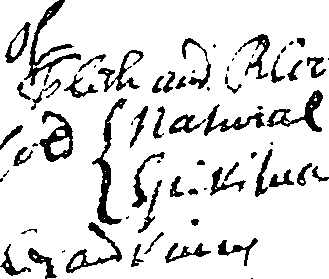 of
Flesh and Bloo
God { Natural
Spiritua
and